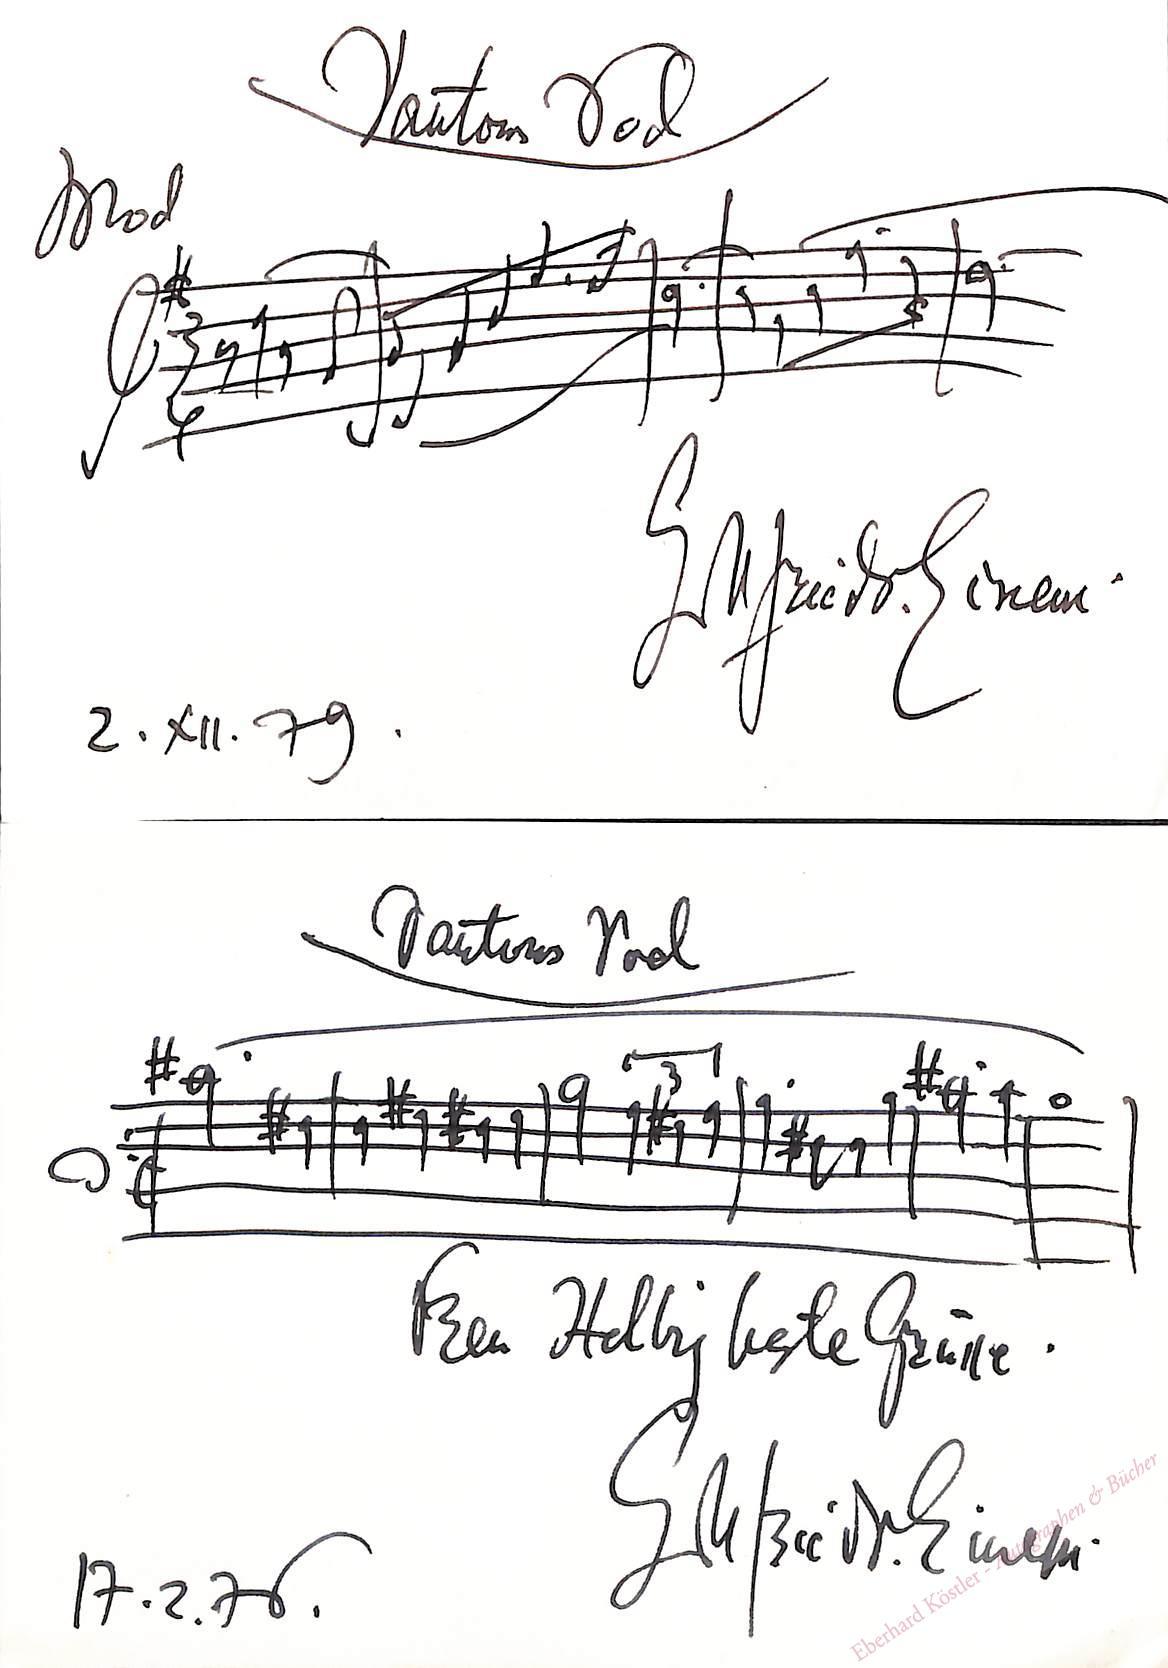 Dantons Tod
Mod
3
4
Gottfried v. Einem.
2. XII. 79.
Dantons Tod
3
Helbig beste Grüsse.
Gottfried v. Einem.
17.2.76.
Eberhard Köstler - Autographen & Bücher